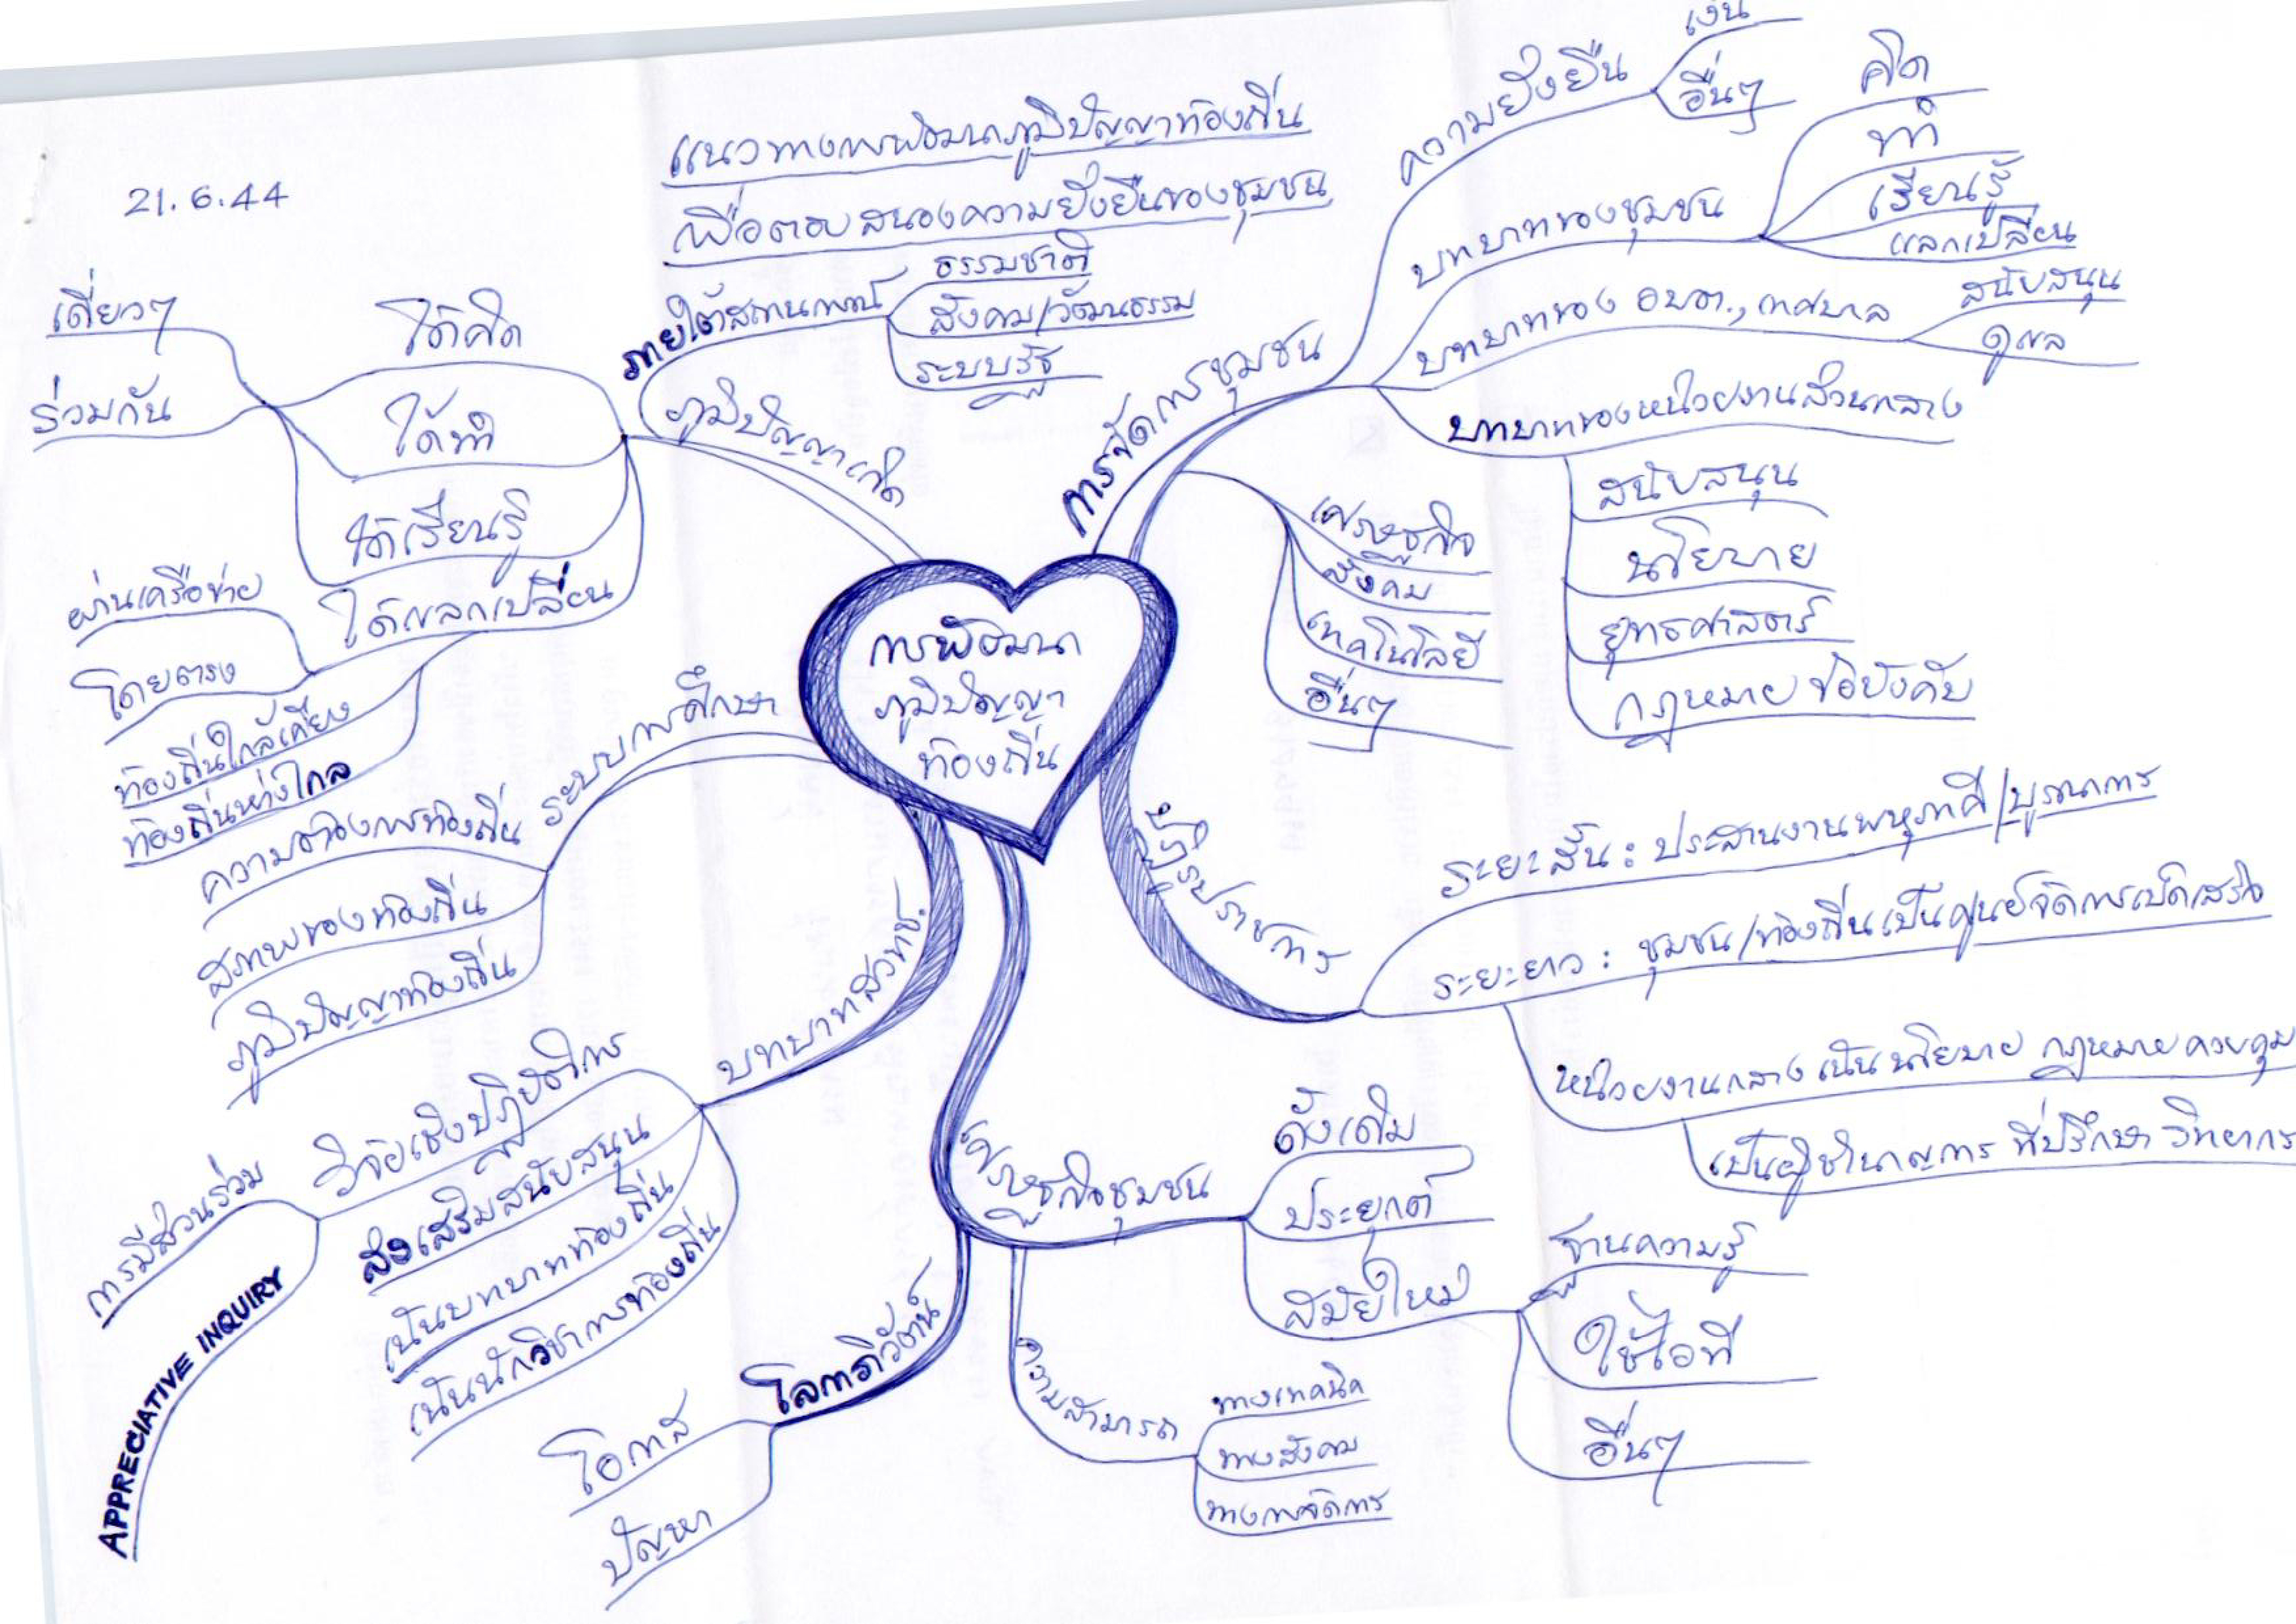 21.6.44
แนวทางการพัฒนาภูมิปัญญาท้องถิ่น
เพื่อตอบสนองความยั่งยืนของชุมชน
การพัฒนา
ภูมิปัญญา
ท้องถิ่น
ภูมิปัญญาเกิด
ภายใต้สถานการณ์
ธรรมชาติ
สังคม/วัฒนธรรม
ระบบรัฐ
ได้คิด
ได้ทำ
ได้เรียนรู้
ได้แลกเปลี่ยน
เดี่ยวๆ
ร่วมกัน
ผ่านเครือข่าย
โดยตรง
ท้องถิ่นใกล้เคียง
ท้องถิ่นห่างไกล
ระบบการศึกษา
ความต้องการท้องถิ่น
สภาพของท้องถิ่น
ภูมิปัญญาท้องถิ่น
บทบาท
วิจัยเชิงปฏิบัติการ
ส่งเสริมสนับสนุน
เน้นบทบาทท้องถิ่น
เน้นนักวิชาการท้องถิ่น
การมีส่วนร่วม
APPRECIATIVE INQUIRY
โลกาภิวัตน์
โอกาส
ปัญหา
การจัดการชุมชน
ความยั่งยืน
เงิน
อื่นๆ
บทบาทของชุมชน
คิด
ทำ
เรียนรู้
แลกเปลี่ยน
บทบาทของ อบต., เทศบาล
สนับสนุน
ดูแล
บทบาทของหน่วยงานส่วนกลาง
สนับสนุน
นโยบาย
ยุทธศาสตร์
กฎหมาย ข้อบังคับ
เศรษฐกิจ
สังคม
เทคโนโลยี
อื่นๆ
ปฏิรูปราชการ
ระยะสั้น : ประสานงานพหุภาคี/บูรณาการ
ระยะยาว : ชุมชน/ท้องถิ่นเป็นศูนย์จัดการเบ็ดเสร็จ
หน่วยงานกลาง เน้นนโยบาย กฎหมาย ควบคุม
เป็นผู้ชำนาญการ ที่ปรึกษา วิทยากร
เศรษฐกิจชุมชน
ดั้งเดิม
ประยุกต์
สมัยใหม่
ฐานความรู้
ใช้ไอที
อื่นๆ
ความสามารถ
ทางเทคนิค
ทางสังคม
ทางการจัดการ